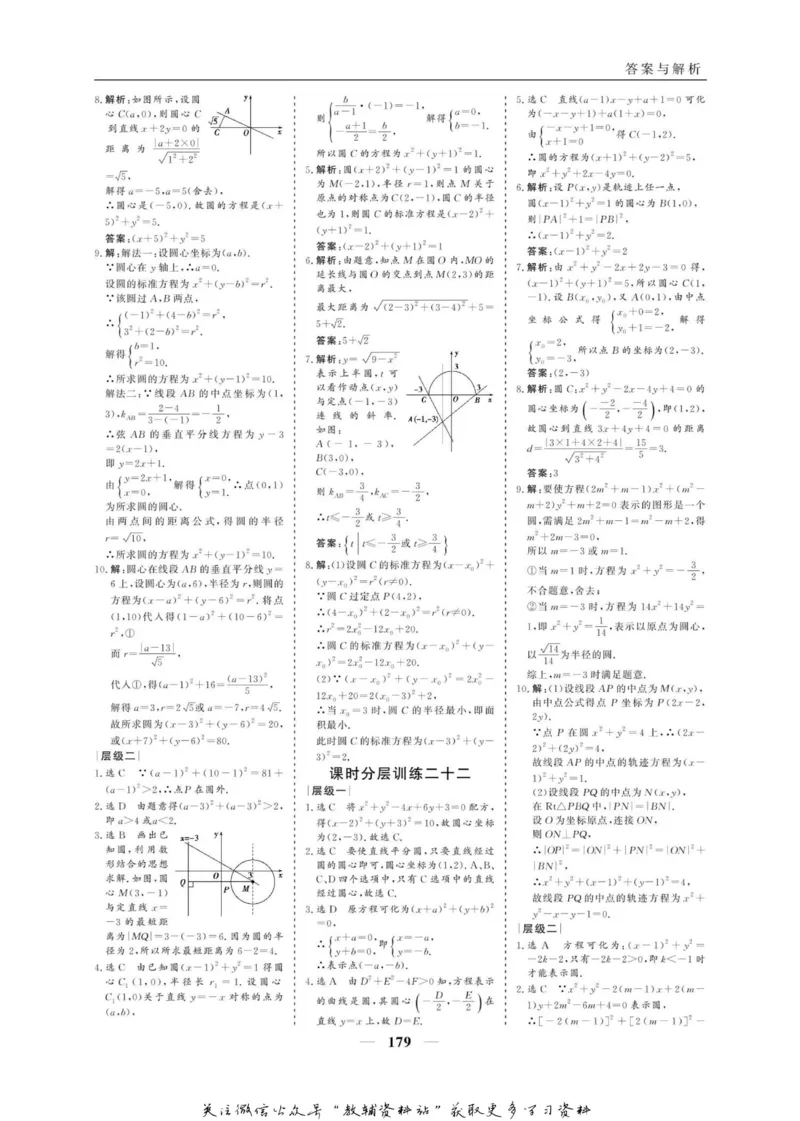 答案与解析
8.解析:如图所示,设圆
心 C(a,0),则圆心 C
到直线 x+2y=0 的
距离为 |a+2×0|/√(1²+2²)
=√5,
解得 a=-5,a=5(舍去),
∴圆心是(-5,0).故圆的方程是(x+
5)²+y²=5.
答案:(x+5)²+y²=5
9.解:解法一:设圆心坐标为(a,b).
∵圆心在 y 轴上,∴a=0.
设圆的标准方程为 x²+(y-b)²=r².
∵该圆过 A,B 两点,
∴{(-1)²+(4-b)²=r²,
3²+(2-b)²=r².
解得{b=1,
r²=10.
∴所求圆的方程为 x²+(y-1)²=10.
解法二:∵线段 AB 的中点坐标为(1,
3),k_AB=(2-4)/(3-(-1))=-1/2,
∴弦 AB 的垂直平分线方程为 y-3
=2(x-1),
即 y=2x+1.
由{y=2x+1,
x=0, 解得{x=0,
y=1. ∴点(0,1)
为所求圆的圆心.
由两点间的距离公式,得圆的半径
r=√10,
∴所求圆的方程为 x²+(y-1)²=10.
10.解:圆心在线段 AB 的垂直平分线 y=
6 上,设圆心为(a,6),半径为 r,则圆的
方程为(x-a)²+(y-6)²=r².将点
(1,10)代入得(1-a)²+(10-6)²=
r²,①
而 r=|a-13|/√5,
代入①,得(a-1)²+16=(a-13)²/5,
解得 a=3,r=2√5或 a=-7,r=4√5.
故所求圆为(x-3)²+(y-6)²=20,
或(x+7)²+(y-6)²=80.
层级二
1.选 C ∵(a-1)²+(10-1)²=81+
(a-1)²>2,∴点 P 在圆外.
2.选 D 由题意得(a-3)²+(a-3)²>2,
即 a>4 或 a<2.
3.选 B 画出已
知圆,利用数
形结合的思想
求解.如图,圆
心 M(3,-1)
与定直线 x=
-3 的最短距
离为|MQ|=3-(-3)=6.因为圆的半
径为 2,所以所求最短距离为 6-2=4.
4.选 C 由已知圆(x-1)²+y²=1 得圆
心 C₁(1,0),半径长 r₁=1.设圆心
C₁(1,0)关于直线 y=-x 对称的点为
(a,b),
则{b/(a-1)·(-1)=-1,
-(a+1)/2=b/2, 解得{a=0,
b=-1.
所以圆 C 的方程为 x²+(y+1)²=1.
5.解析:圆(x+2)²+(y-1)²=1 的圆心
为 M(-2,1),半径 r=1,则点 M 关于
原点的对称点为 C(2,-1),圆 C 的半径
也为 1,则圆 C 的标准方程是(x-2)²+
(y+1)²=1.
答案:(x-2)²+(y+1)²=1
6.解析:由题意,知点 M 在圆 O 内,MO 的
延长线与圆 O 的交点到点 M(2,3)的距
离最大,
最大距离为 √((2-3)²+(3-4)²)+5=
5+√2.
答案:5+√2
7.解析:y=√(9-x²)
表示上半圆,t 可
以看作动点(x,y)
与定点(-1,-3)
连线的斜率.
如图:
A(-1,-3),
B(3,0),
C(-3,0),
则 k_AB=3/4,k_AC=-3/2,
∴t≤-3/2或 t≥3/4.
答案:{t|t≤-3/2或t≥3/4}
8.解:(1)设圆 C 的标准方程为(x-x₀)²+
(y-x₀)²=r²(r≠0).
∵圆 C 过定点 P(4,2),
∴(4-x₀)²+(2-x₀)²=r²(r≠0).
∴r²=2x₀²-12x₀+20.
∴圆 C 的标准方程为(x-x₀)²+(y-
x₀)²=2x₀²-12x₀+20.
(2)∵(x-x₀)²+(y-x₀)²=2x₀²-
12x₀+20=2(x₀-3)²+2,
∴当 x₀=3 时,圆 C 的半径最小,即面
积最小.
此时圆 C 的标准方程为(x-3)²+(y-
3)²=2.
课时分层训练二十二
层级一
1.选 C 将 x²+y²-4x+6y+3=0 配方,
得(x-2)²+(y+3)²=10,故圆心坐标
为(2,-3).故选 C.
2.选 C 要使直线平分圆,只要直线经过
圆的圆心即可,圆心坐标为(1,2).A、B、
C、D 四个选项中,只有 C 选项中的直线
经过圆心,故选 C.
3.选 D 原方程可化为(x+a)²+(y+b)²
=0,
∴{x+a=0,
y+b=0, 即{x=-a,
y=-b.
∴表示点(-a,-b).
4.选 A 由 D²+E²-4F>0 知,方程表示
的曲线是圆,其圆心(-D/2,-E/2)在
直线 y=x 上,故 D=E.
5.选 C 直线(a-1)x-y+a+1=0 可化
为(-x-y+1)+a(1+x)=0,
由{-x-y+1=0,
x+1=0 得 C(-1,2).
∴圆的方程为(x+1)²+(y-2)²=5,
即 x²+y²+2x-4y=0.
6.解析:设 P(x,y)是轨迹上任一点,
圆(x-1)²+y²=1 的圆心为 B(1,0),
则|PA|²+1=|PB|²,
∴(x-1)²+y²=2.
答案:(x-1)²+y²=2
7.解析:由 x²+y²-2x+2y-3=0 得,
(x-1)²+(y+1)²=5,所以圆心 C(1,
-1).设 B(x₀,y₀),又 A(0,1),由中点
坐标公式得{x₀+0=2,
y₀+1=-2, 解得
{x₀=2,
y₀=-3, 所以点 B 的坐标为(2,-3).
答案:(2,-3)
8.解析:圆 C:x²+y²-2x-4y+4=0 的
圆心坐标为(-(-2)/2,-(-4)/2),即(1,2),
故圆心到直线 3x+4y+4=0 的距离
d=|3×1+4×2+4|/√(3²+4²)=15/5=3.
答案:3
9.解:要使方程(2m²+m-1)x²+(m²-
m+2)y²+m+2=0 表示的图形是一个
圆,需满足 2m²+m-1=m²-m+2,得
m²+2m-3=0,
所以 m=-3 或 m=1.
①当 m=1 时,方程为 x²+y²=-3/2,
不合题意,舍去;
②当 m=-3 时,方程为 14x²+14y²=
1,即 x²+y²=1/14,表示以原点为圆心,
以√14/14为半径的圆.
综上,m=-3 时满足题意.
10.解:(1)设线段 AP 的中点为 M(x,y),
由中点公式得点 P 坐标为 P(2x-2,
2y).
∵点 P 在圆 x²+y²=4 上,∴(2x-
2)²+(2y)²=4,
故线段 AP 的中点的轨迹方程为(x-
1)²+y²=1.
(2)设线段 PQ 的中点为 N(x,y),
在 Rt△PBQ 中,|PN|=|BN|.
设 O 为坐标原点,连接 ON,
则 ON⊥PQ,
∴|OP|²=|ON|²+|PN|²=|ON|²+
|BN|²,
∴x²+y²+(x-1)²+(y-1)²=4,
故线段 PQ 的中点的轨迹方程为 x²+
y²-x-y-1=0.
层级二
1.选 A 方程可化为:(x-1)²+y²=
-2k-2,只有-2k-2>0,即 k<-1 时
才能表示圆.
2.选 C ∵x²+y²-2(m-1)x+2(m-
1)y+2m²-6m+4=0 表示圆,
∴[-2(m-1)]²+[2(m-1)]²-
179
关注微信公众号“教辅资料站”获取更多学习资料